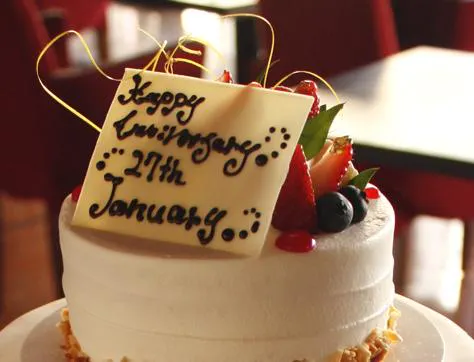 Happy
Anniversary
27th
January